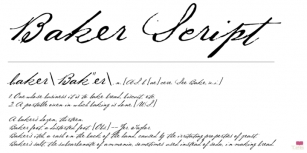 Baker Script
baker \ Bak"er \, n. [AS.
1 One whose business it is to bake bread, biscuit, etc.
2 A portable oven in which baking is done. [U.S.]
A baker's dozen, thirteen.
Baker foot, a distorted foot. [Obs.] Jer. Taylor.
Baker's itch, a rash on the back of the hand, caused by the irritating properties of yeast.
Baker's salt, the subcarbonate of ammonia, sometimes used instead of soda, in making bread.